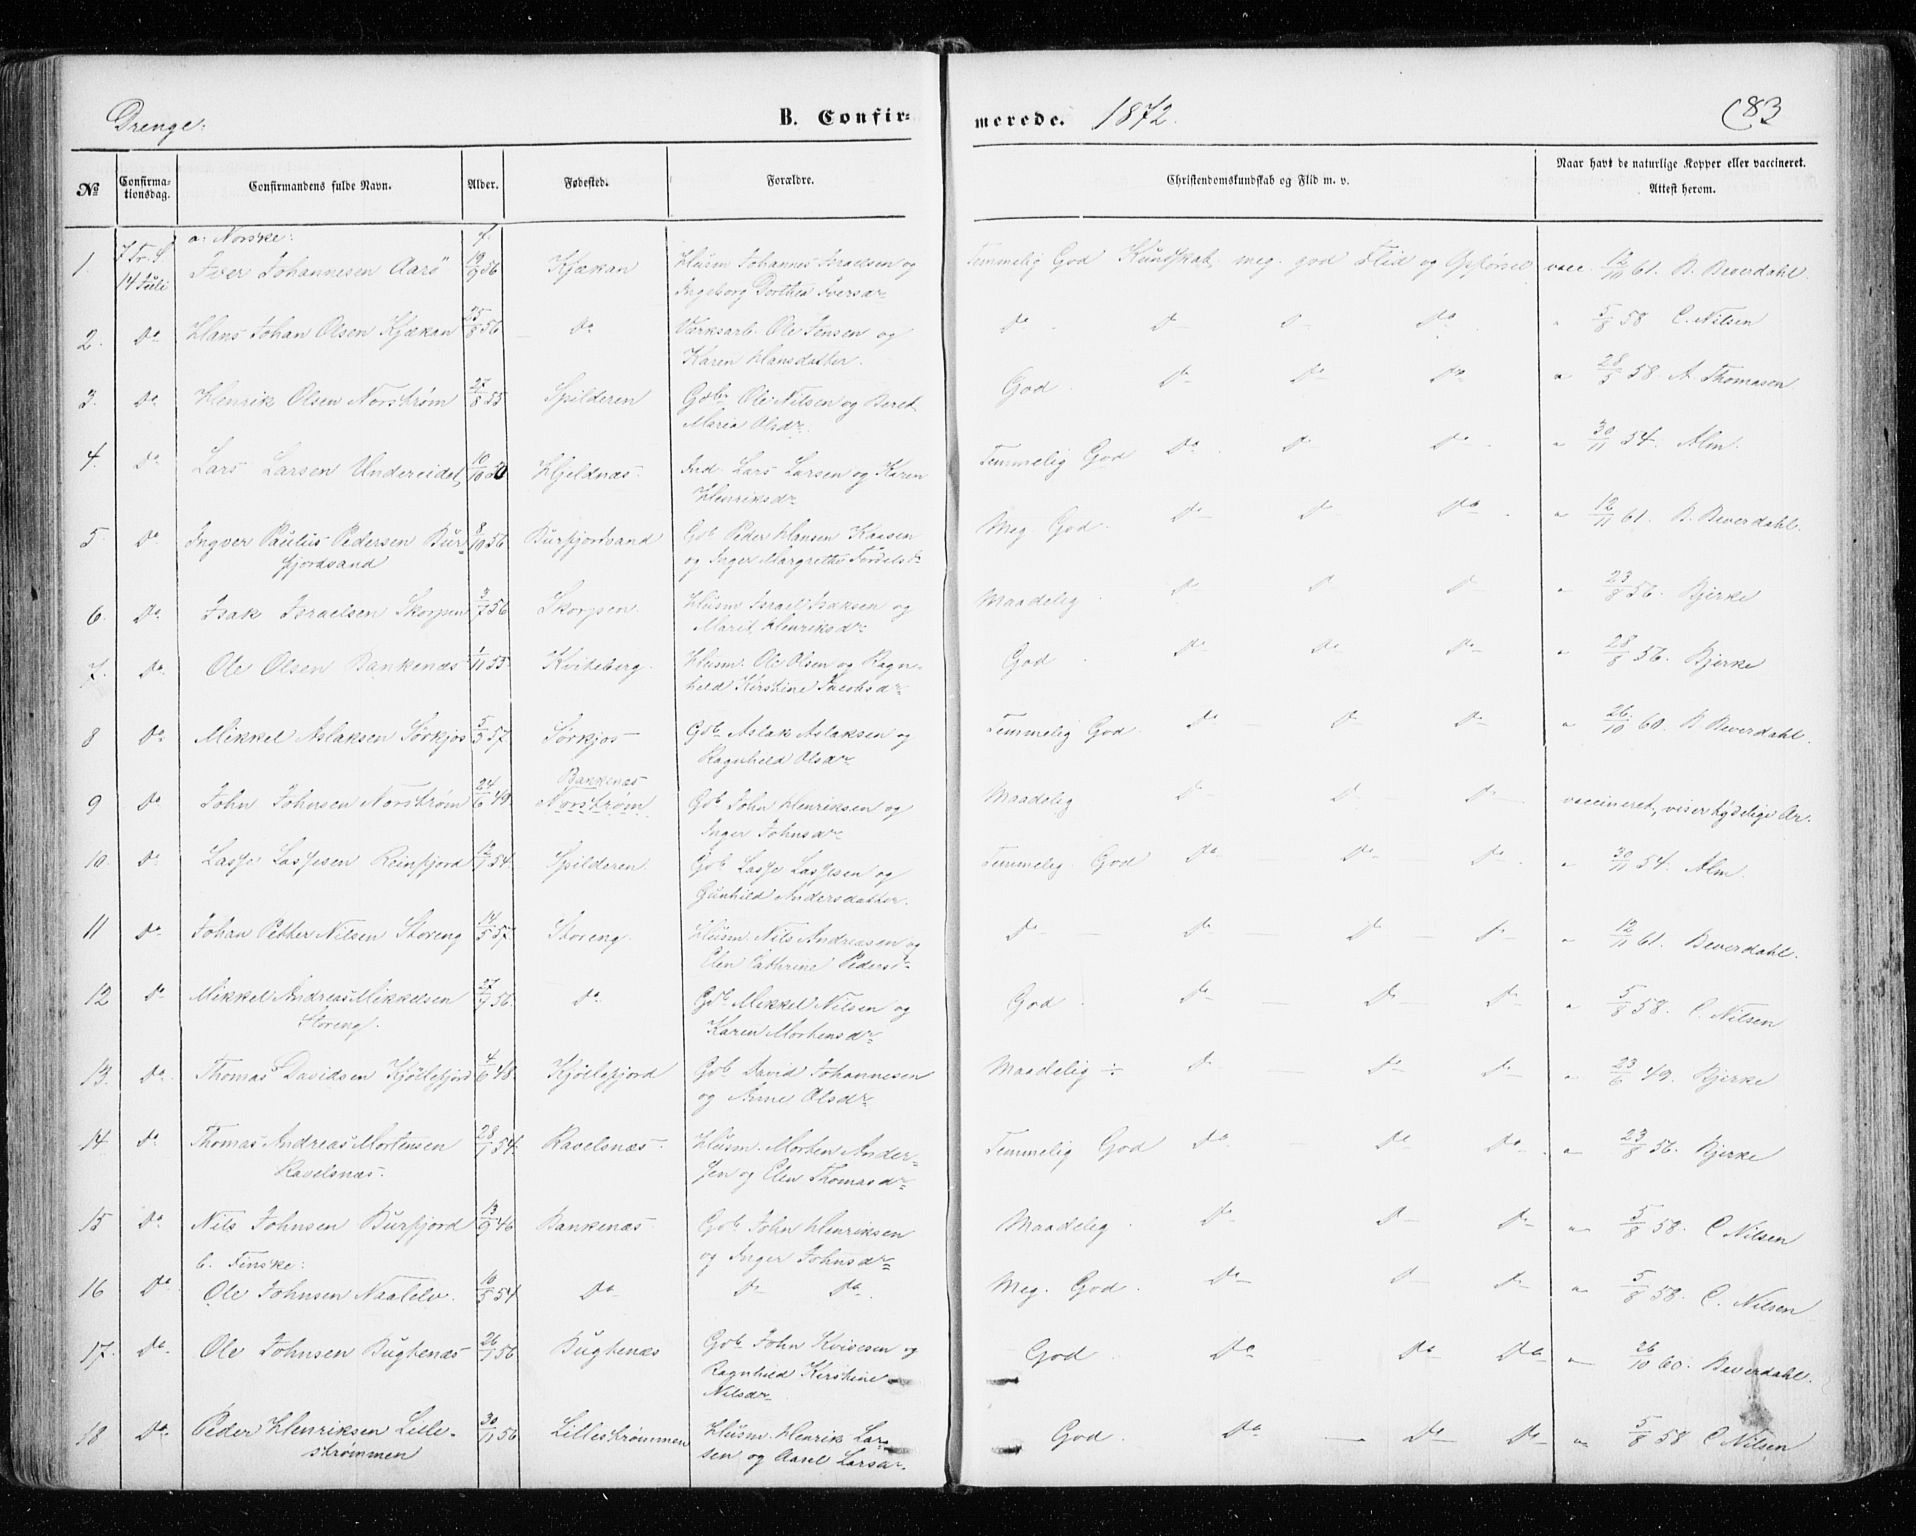 Drenge: B. Confir- merede. 1872. 83
No Confirma-tionsdag. Confirmandens fulde Navn. Alder. Fødested. Forældre. Christendomskundskab og Flid m. v. Naar havt de naturlige Kopper eller vaccineret. Attest herom.
a. Norske:
1. 7 Tr. S. 14 Juli Iver Johannesen Aarø 19/9 56 Kjækan Husm Johannes Israelsen og Temmelig God Kundskab, meg. god Flid og Opførsel vacc. 12/11 61. B. Beverdahl.
Ingeborg Dorthea Iversdr
2. Do Hans Johan Olsen Kjækan 25/5 56 Do Værksarb. Ole Jensen og Do Do Do Do " 5/8 58 C. Nilsen
Karen Hansdatter.
3. Do Henrik Olsen Norstrøm 27/8 55 Spilderen Gdb Ole Nilsen og Beret God. Do Do Do " 28/5 58. A Thomasen
Maria Olsdr
4. Do Lars Larsen Undereidet, 10/10 50 Hjeldnæs Ind. Lars Larsen og Karen Temmelig God Do Do Do " 30/11 54. Alm.
Henriksdr
5 Do Ingver Paulus Pedersen Bur- 8/10 56 Burfjordvand Gdb Peder Hansen Kaasen Meg. God. Do Do Do " 12/11 61. B. Beverdahl.
fjordvand og Inger Margrethe
6. Do Isak Israelsen Skorpen 3/7 56 Skorpen. Husm. Israel Isaksen og Maadelig. Do Do Do " 23/8 56. Bjerke
Marit Henriksdr
7. Do Ole Olsen Bankenæs 1/11 55 Kviteberg. Husm. Ole Olsen og Ragn- God Do Do Do " 28/8 56. Bjerke
hild Kirstine Jacobsdr
8 Do Mikkel Aslaksen Sørkjos 5/3 57 Sørkjos Gdb Aslak Aslaksen og Temmelig God. Do Do Do " 26/10 60. B Beverdahl.
Ragnhild Olsdr
Bankenæs
9 Do John Johnsen Norstrøm 24/6 49. Norstrøm Gdb John Henriksen og Maadelig Do Do Do vaccineret, viser tydelige Ar.
Inger Johnsdr
10. Do Lasse Lassesen Reinfjord 12/7 54. Spilderen Gdb Lasse Lassesen og Temmelig God Do Do Do " 30/11 54. Alm.
Gunhild Andersdatter.
11 Do Johan Petter Nilsen Storeng 14/5 57. Storeng. Husm. Nils Andreasen og Do Do Do Do " 12/11 61. Beverdahl.
Elen Cathrine Pedersdr
12 Do Mikkel Andreas Mikkelsen 27/7 56. Do Gdb Mikkel Nilsen og God Do Do Do " 5/8 58. C. Nilsen
Storeng. Karen Mortensdr
13. Do Thomas Davidsen Kjøllefjord 4/6 48. Kjøllefjord Gdb David Johannesen Maadelig ÷ Do Do Do " 23/6 49. Bjerke
og Anne Olsdr
14. Do Thomas Andreas Mortensen 28/7 54. Ravelsnæs. Husm. Morten Ander- Temmelig God Do Do Do " 23/8 56. Bjerke
Ravelsnæs. sen og Elen Thomasdr
15 Do Nils Johnsen Burfjord 13/9 46 Bankenæs Gdb John Henriksen Maadelig. Do Do Do " 5/8 58. C Nilsen
b. Finske: og Inger Johnsdr
16 Do Ole Johnsen Naalelv. 10/5 54 Do Do Do Meg. God. Do Do Do " 5/8 58. C. Nilsen
17. Do Ole Johnsen Bugtenæs 26/1 56 Bugtenæs Gdb John Kvisesen og God Do Do Do " 26/10 60. Beverdahl.
Ragnhild Kirstine
Nilsdr
18 Do Peder Henriksen Lille- 30/11 56 Lillestrømmen Husm. Henrik Lar- God. Do Do Do " 5/8 58 C Nilsen
strømmen sen og Aael Larsdr